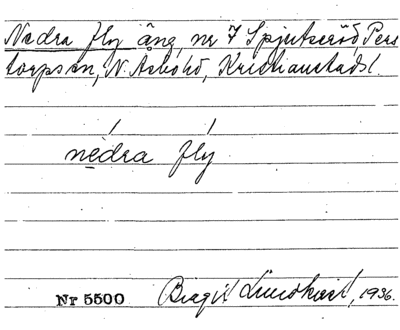 Nedra fly äng, nr 7 Spjutseröd, Pers
torps sn, N. Åsbo hd, Kristianstads l.
nedra fly
Nr 5500 Birgit Lindkvist, 1936.